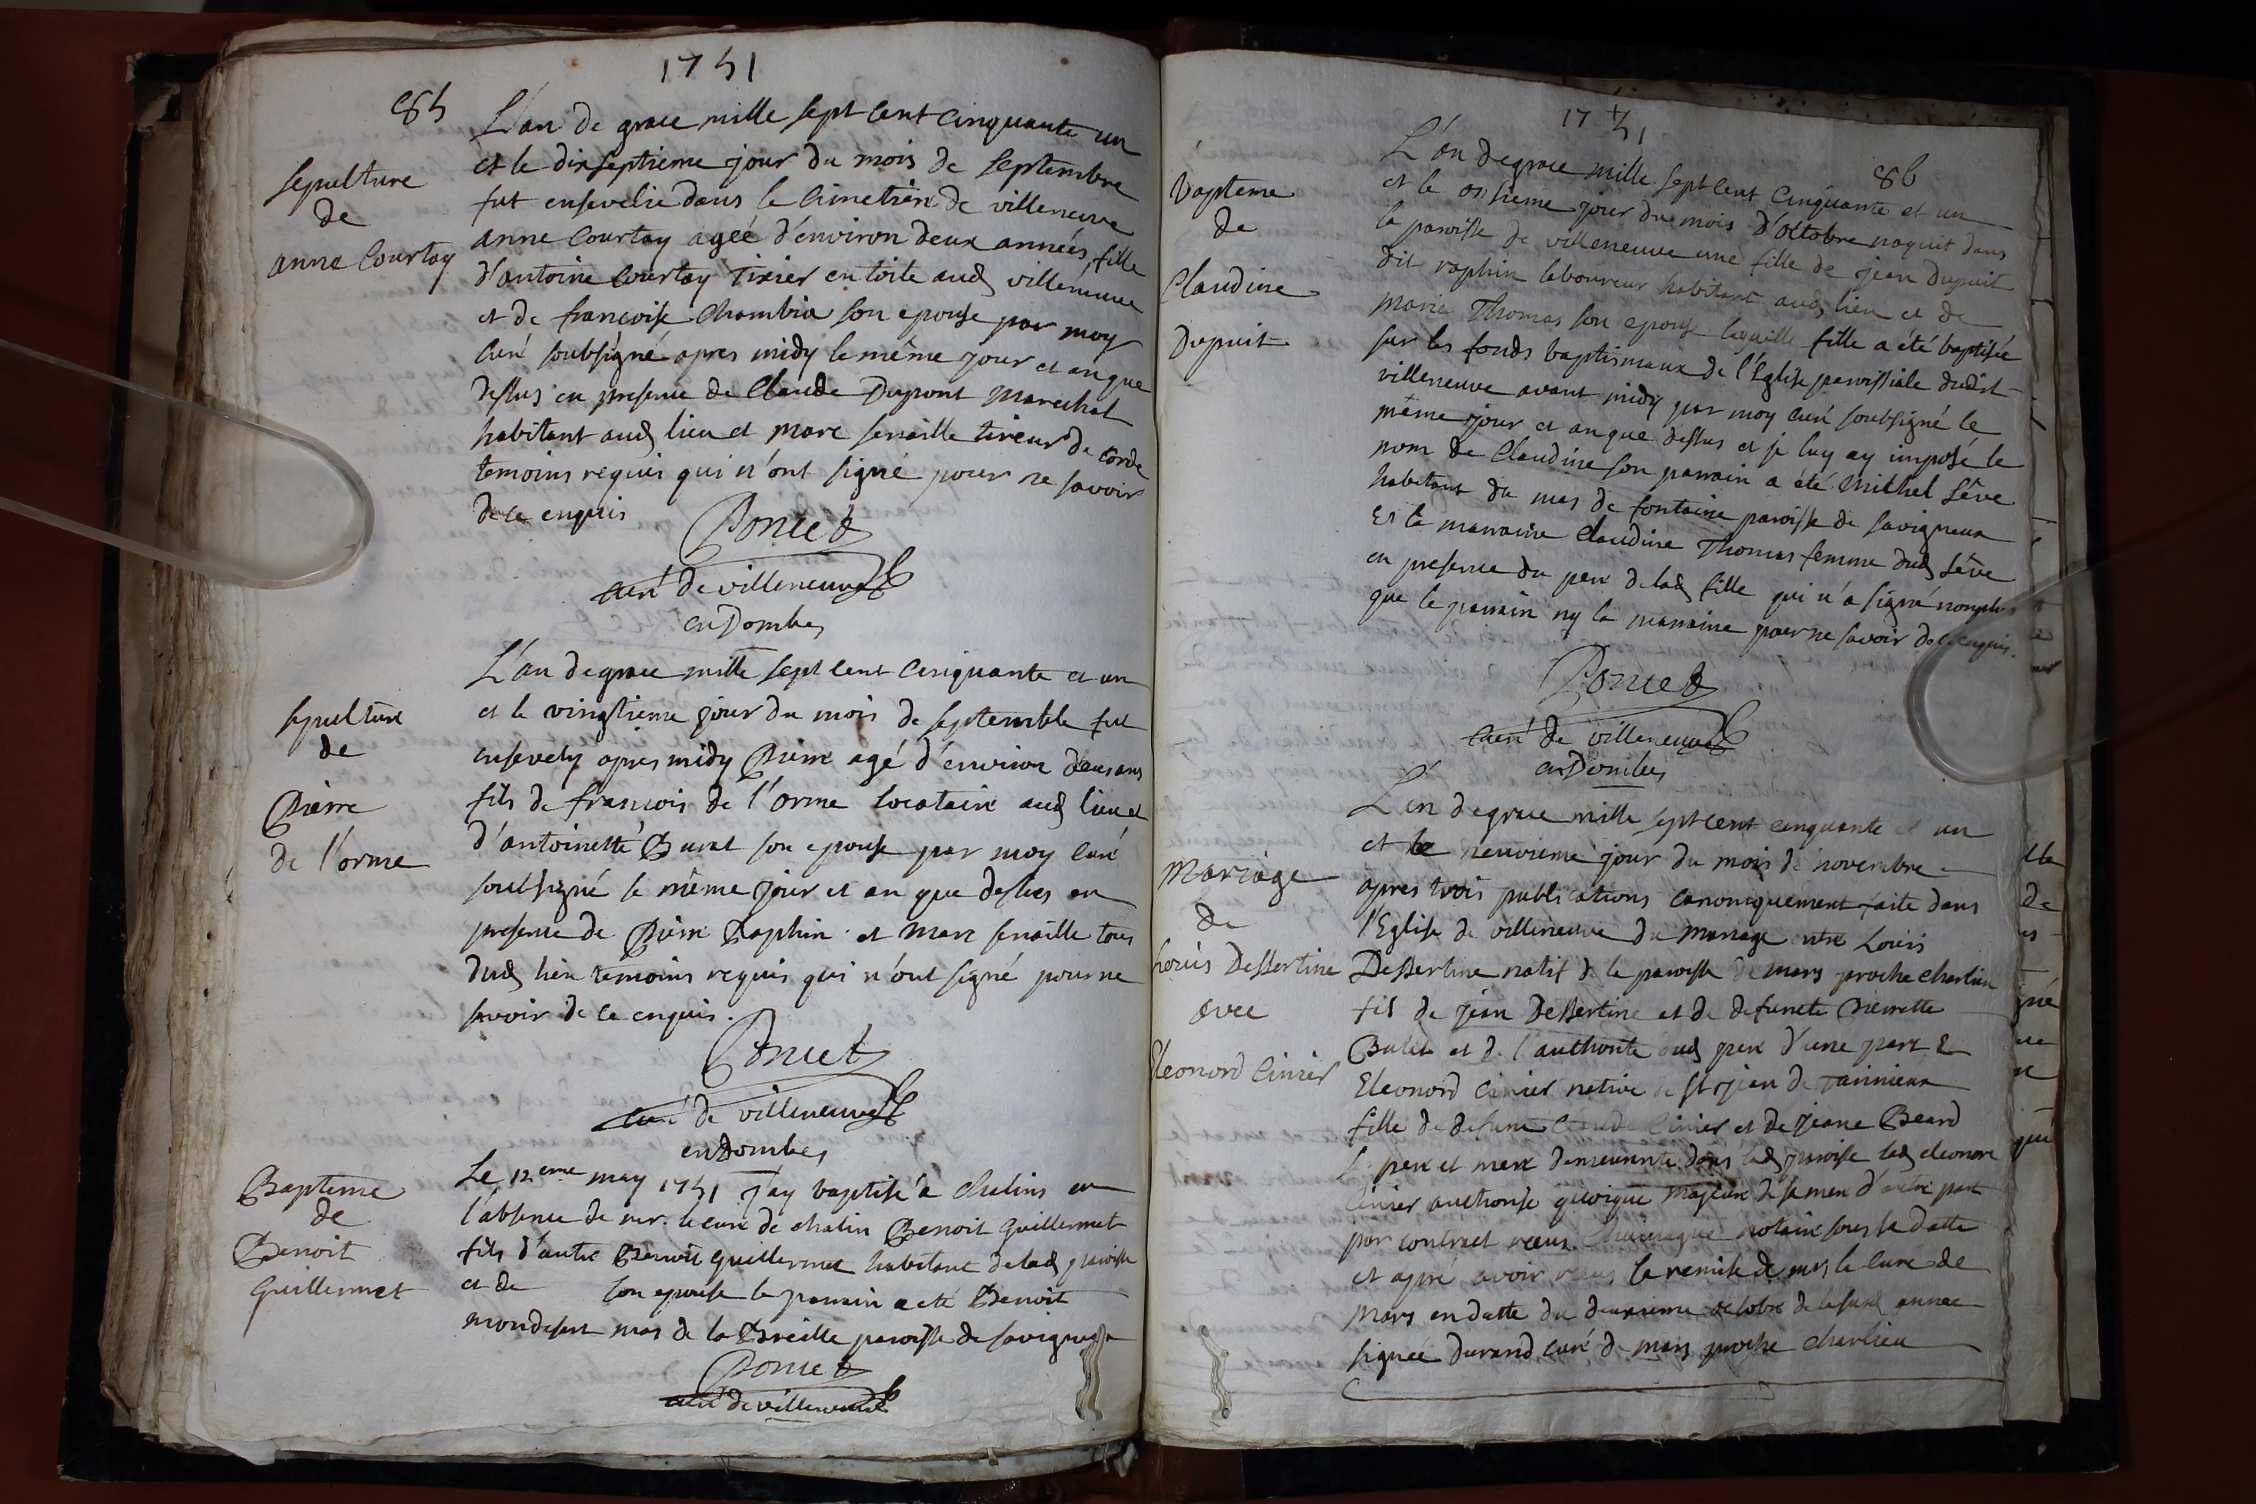 1751
85
L'an de grace mille sept cent cinquante un
et le dixseptieme jour du mois de septembre
fut ensevelie dans le Cimetiere de villeneuve
anne Courtay ageé d'environ deux années fille
d'antoine Courtay Tixier en toile aud villeneuve
et de francoise Chambia son epouse par moy
curé soubsigné apres midy le même jour et an que
dessus en presence de Claude Dupont marechal
habitant aud lieu et marc senaille tireur de corde
temoins requis qui n'ont signé pour ne savoir
de ce enquis
Poncet
curé de villeneuve
en Dombes
sepulture
de
anne Courtay
L'an de grace mille sept cent cinquante et un
et le vingtieme jour du mois de septembre fut
ensevely apres midy Pierre agé d'environ deux ans
fils de francois de l'orme locataire aud lieu et
d'antoinette Burat son epouse par moy curé
soubsigné le même jour et an que dessus en
presence de Pierre Raphin et marc senaille tous
dud lieu temoins requis qui n'ont signé pour ne
savoir de ce enquis.
Poncet
curé de villeneuve
en Dombes
sepulture
de
Pierre
de l'orme
Le 12eme may 1751 J'ay baptisé a chalins en
l'absence de mr. le curé de chalin Benoit Guillermet
fils d'autre Benoit guillermet habitant de lad paroisse
et de son epouse le parrain a eté Benoit
mondesert mas de la Breille paroisse de savigneux
Poncet
curé de villeneuve
Bapteme
de
Benoit
Guillermet
1751
86
L'an de grace mille sept cent cinquante et un
et le onsieme jour du mois d'octobre naquit dans
la paroisse de villeneuve une fille de jean Dupuit
dit raphin laboureur habitant aud lieu et de
marie Thomas son epouse laquelle fille a été baptisée
sur les fonds baptismaux de l'Eglise paroissiale dudit
villeneuve avant midy par moy curé soubsigné le
même jour et an que dessus et je luy ay imposé le
nom de Claudine son parrain a été Michel Sêve
habitant du mas de fontaine paroisse de savigneux
Et la marraine Claudine Thomas femme dud Sêve
en presence du pere de lad fille qui n'a signé non plus
que le parrain ny la marraine pour ne savoir de ce enquis.
Poncet
curé de villeneuve
en Dombes
bapteme
de
Claudine
Dupuit
L'an de grace mille sept cent cinquante et un
et le neuvieme jour du mois de novembre
apres trois publications canoniquement faite dans
l'Eglise de villeneuve du mariage entre Louis
Dessertine natif de la paroisse de mars proche charlieu
fils de jean Dessertine et de defuncte Pierrette
et de l'authorité dud pere d'une part &
Eleonord Cinier native de st jean de Tarinieux
fille de defunt Claude Cinier et de jeane Beard
pere et mere demeurante dans lad paroisse lad eleonore
Cinier authorisé quoique majeure de sa mere d'autre part
par contract receu notaire sous sa datte
et apré avoir receu la remise de mr le curé de
Mars en datte du deuxieme octobre de la susd année
signée durand curé de mars proche charlieu
Mariage
de
Louis Dessertine
avec
Eleonord Cinier